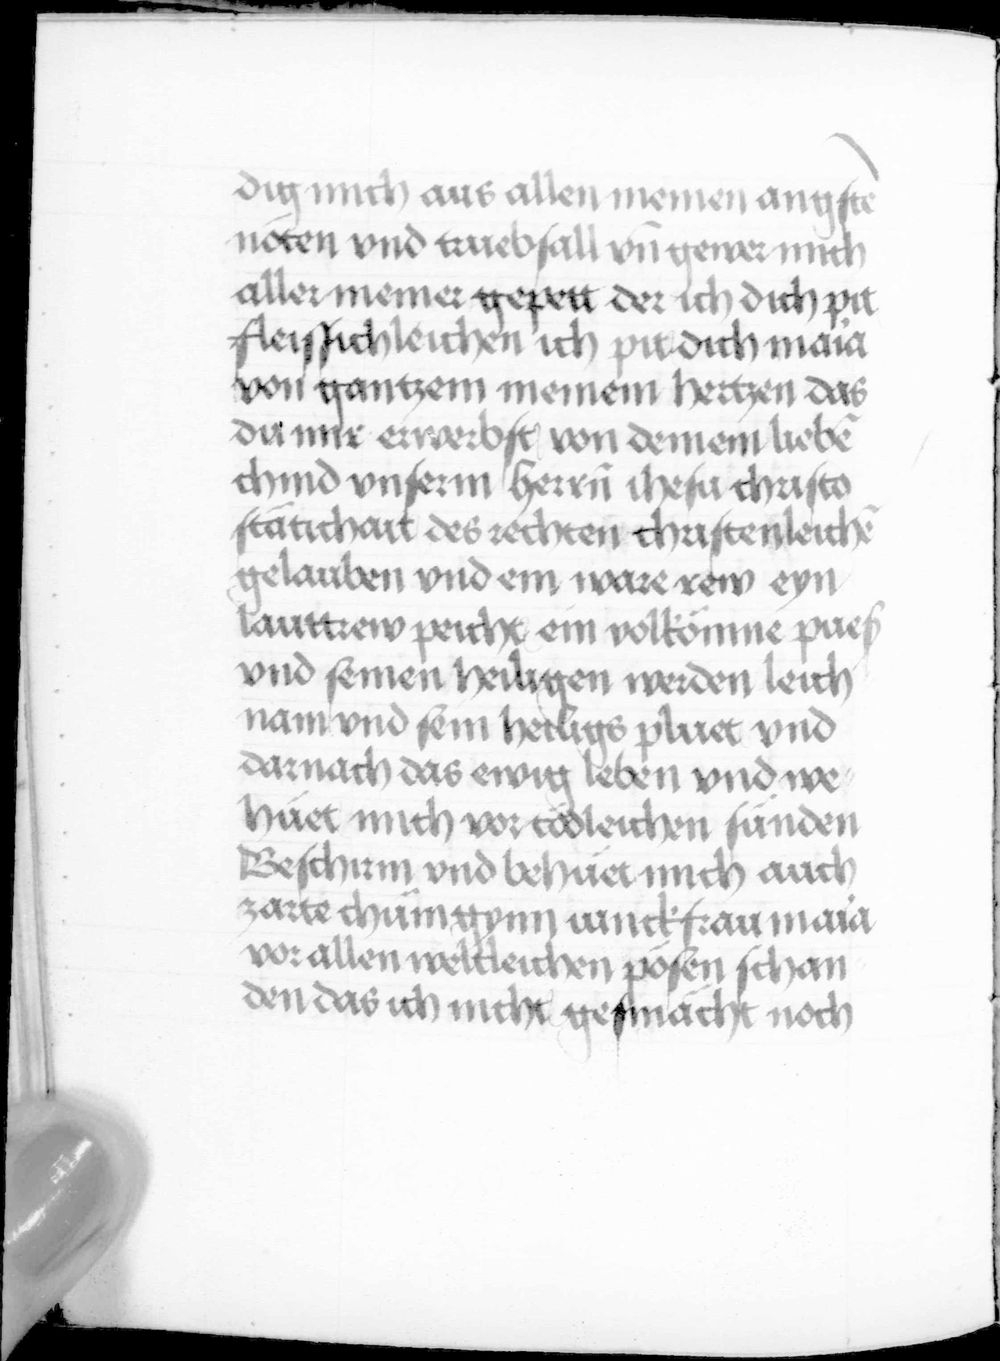 dig mich aus allen meinen angstē
nöten vnd truebsall vn̄ gewer mich
aller meiner gepett der ich dich pit
fleissichleichen ich pit dich maīa
von gantzem meinem hertzen das
du mir erwerbst von deinem liebē
chind vnserm herrn̄ ihesu christo
stätichait des rechten christenleichē
gelauben vnd ein ware rew eyn
lauttrew peicht ein volkōmne pueß
vnd seinen heiligen werden leich
nam vnd sein heiligs pluet vnd
darnach das ewig leben vnd we
hüet mich vor tödleichen sünden
Beschirm vnd behüet mich auch
zarte chüniggynn iunckfrau maīa
vor allen weltleichen pösen schan
den das ich nicht gesmächt noch